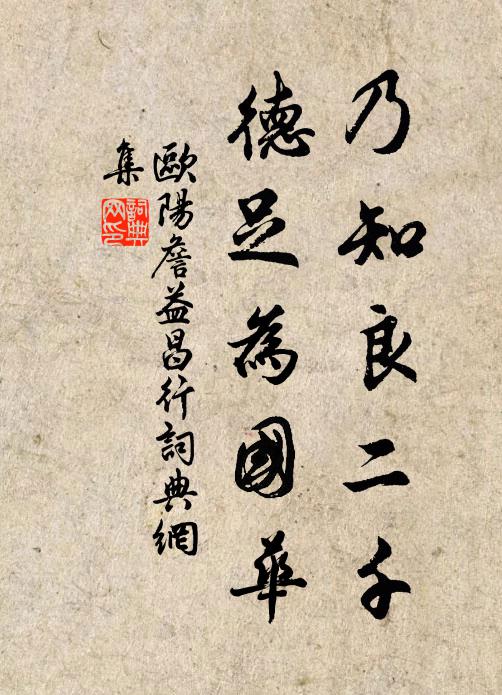 乃知良二千
德足為國華
歐陽詹益昌行詞典網
集
詞典
网印